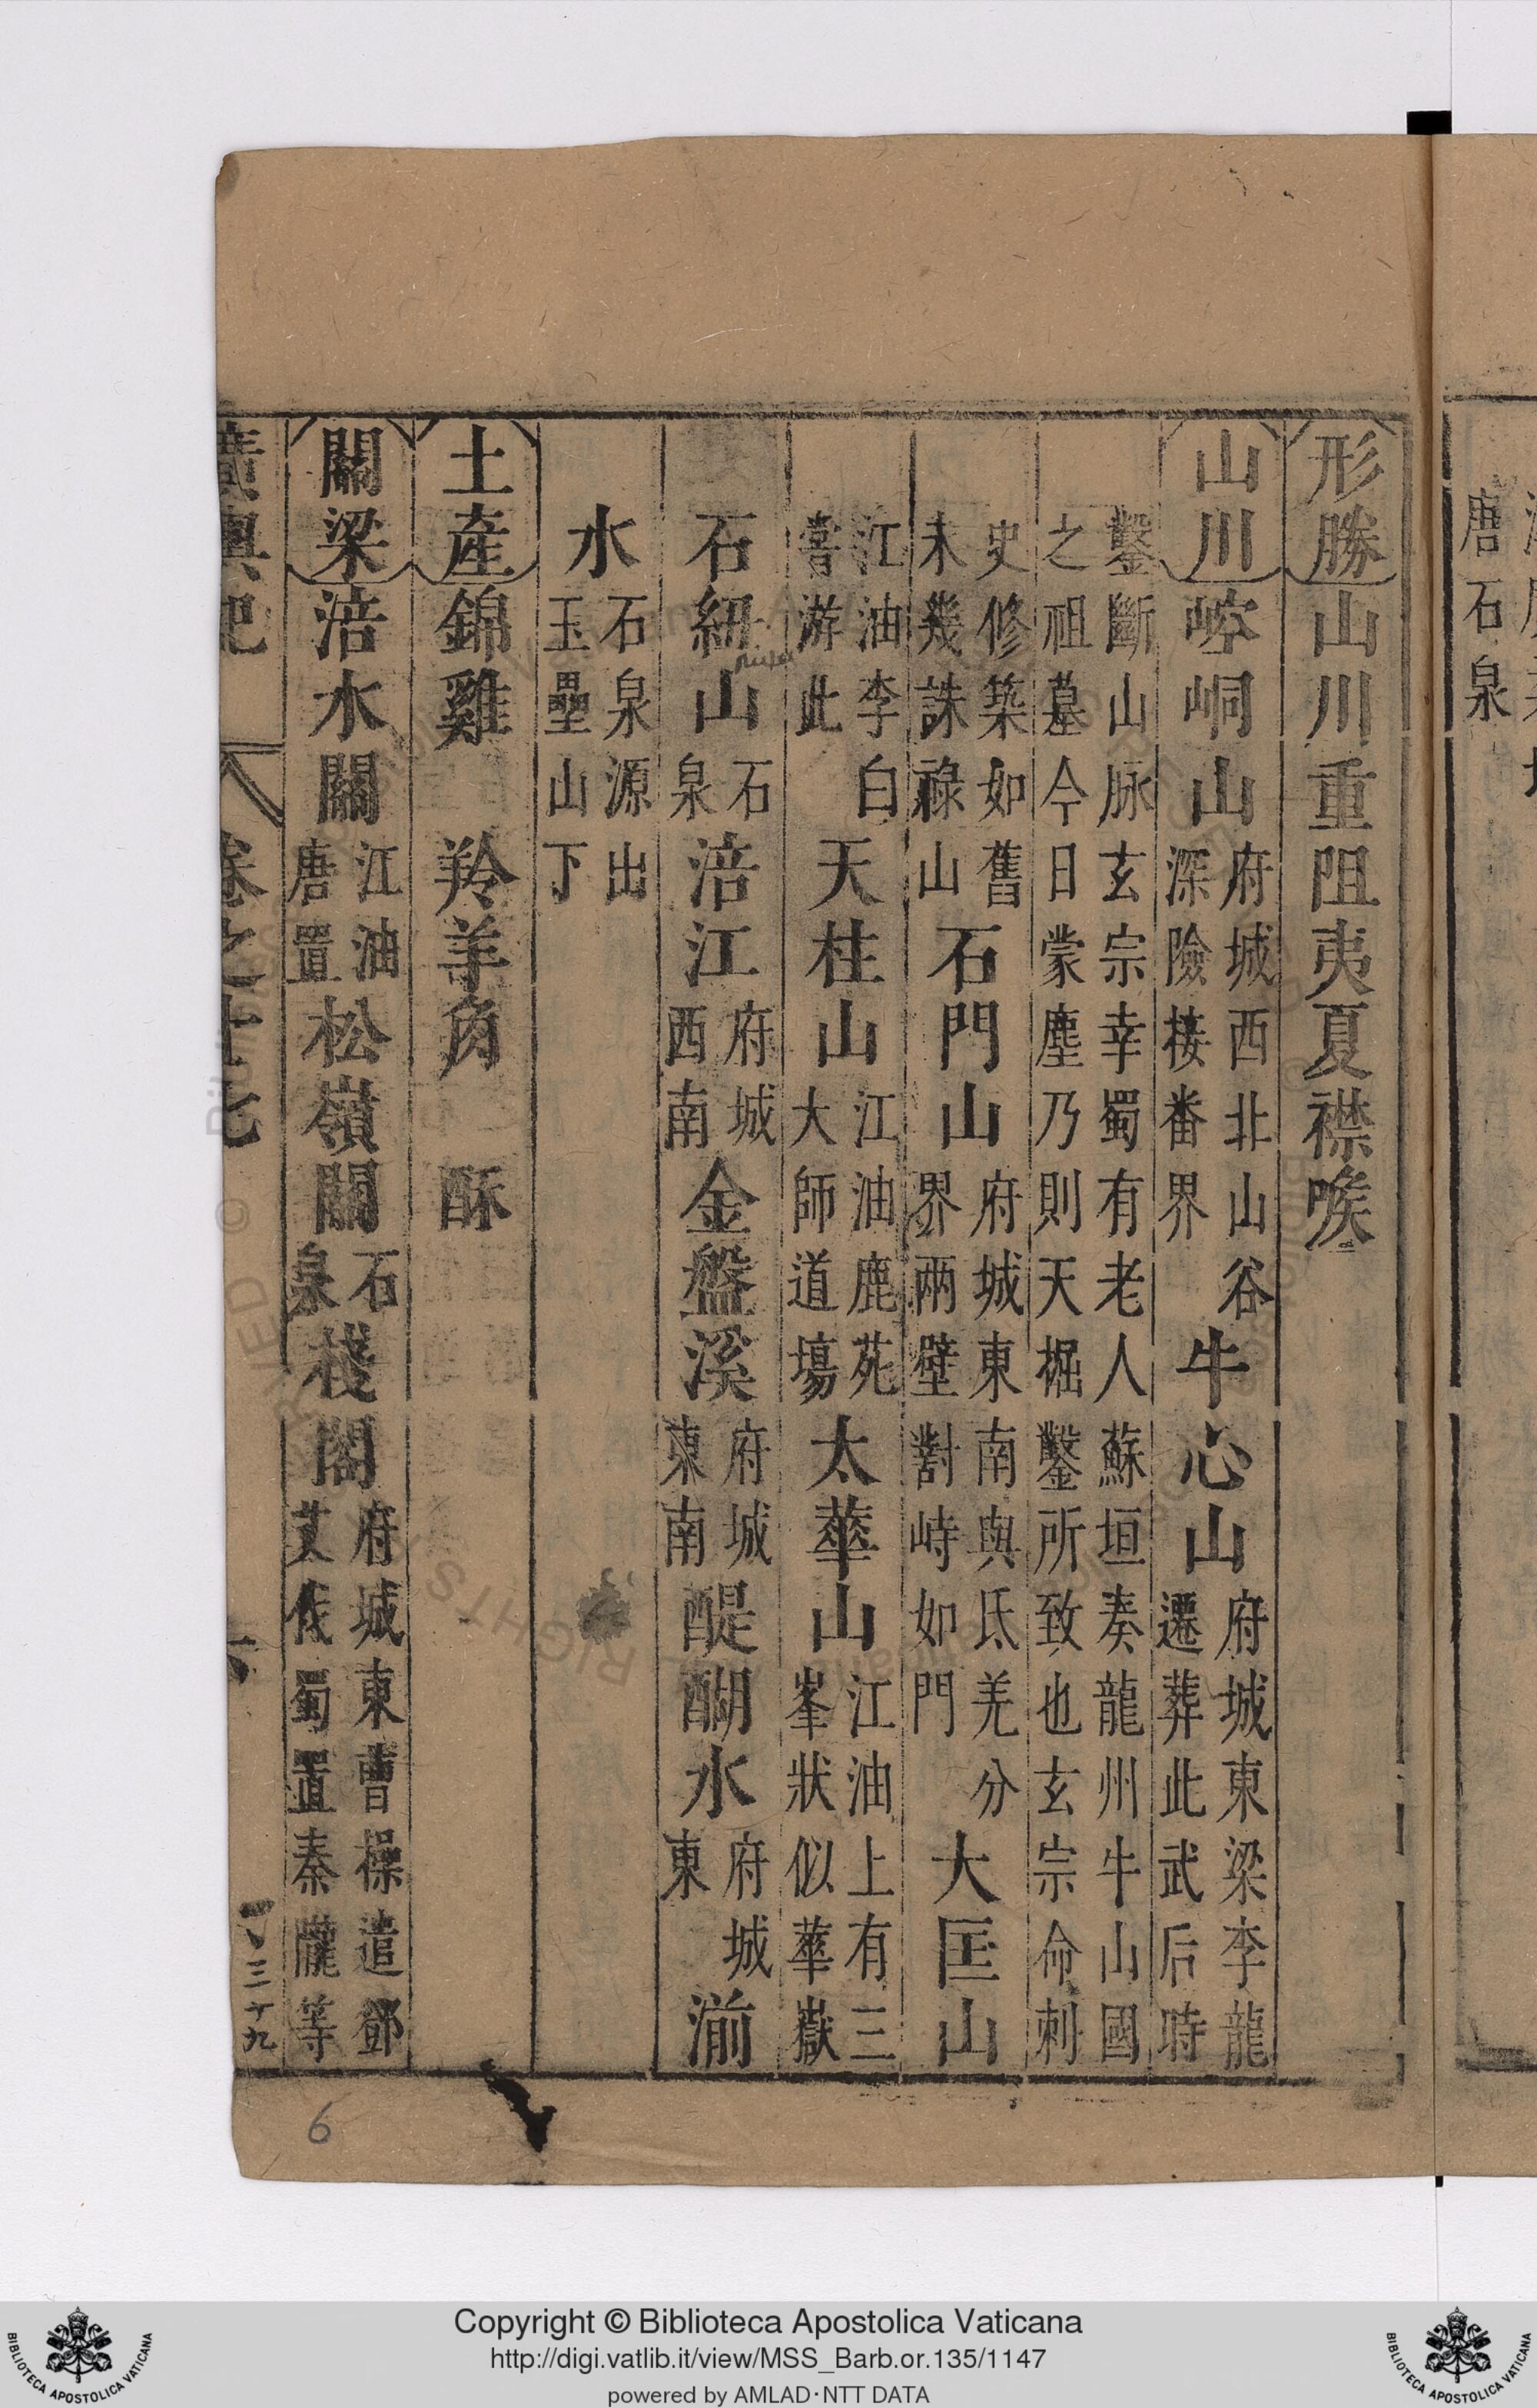 形勝山川重阻夷夏襟喉
山川崆峒山府城西北山谷深險接番界牛心山府城東梁李龍遷葬此武后時
鑿斷山脉玄宗幸蜀有老人蘇垣奏龍州牛山國之祖墓今日蒙塵乃則天掘鑿所致也玄宗命刺
史修築如舊未幾誅祿山石門山府城東南與氐羌分界兩壁對峙如門大匡山
江油李白嘗游此天柱山江油鹿苑大師道塲太華山江油上有三峯狀似華嶽
石紐山石泉涪江府城西南金盤溪府城東南醍醐水府城東湔
水石泉源出玉壘山下
土產錦雞 羚羊角 酥
關梁涪水關江油唐置松嶺關石泉棧閣府城東曹操遣鄧艾伐蜀置秦隴等
廣輿記 卷之十七 六
三十九
6
唐石泉
Copyright © Biblioteca Apostolica Vaticana
http://digi.vatlib.it/view/MSS_Barb.or.135/1147
powered by AMLAD·NTT DATA
BIBLIOTECA APOSTOLICA VATICANA
BIBLIOTECA APOSTOLICA VATICANA